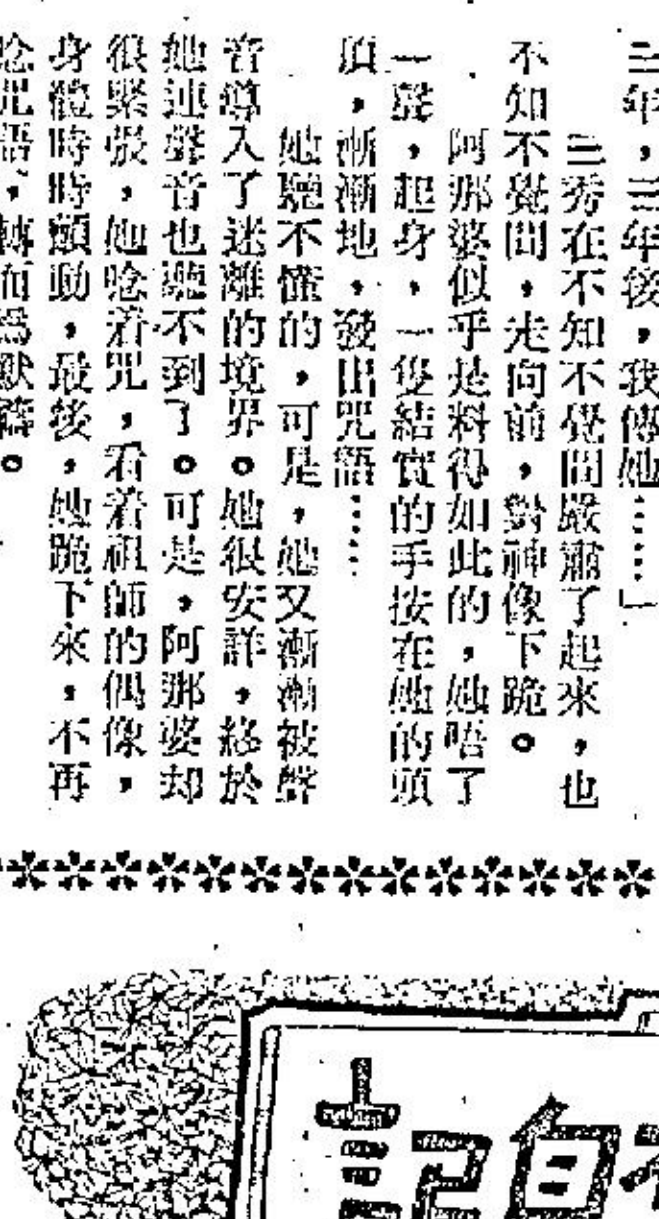 三年，三年後，我傳她……」
三秀在不知不覺間嚴肅了起來，也
不知不覺間，走向前，對神像下跪。
阿那婆似乎是料得如此的，她唔了
一聲，起身，一隻結實的手按在她的頭
頂，漸漸地，發出咒語……
她聽不懂的，可是，她又漸漸被聲
音導入了迷離的境界。她很安詳，終於
她連聲音也聽不到了。可是，阿那婆却
很緊張，她唸着咒，看着祖師的偶像，
身體時時顫動，最後，她跪下來，不再
唸咒語，轉而爲默禱。
記自